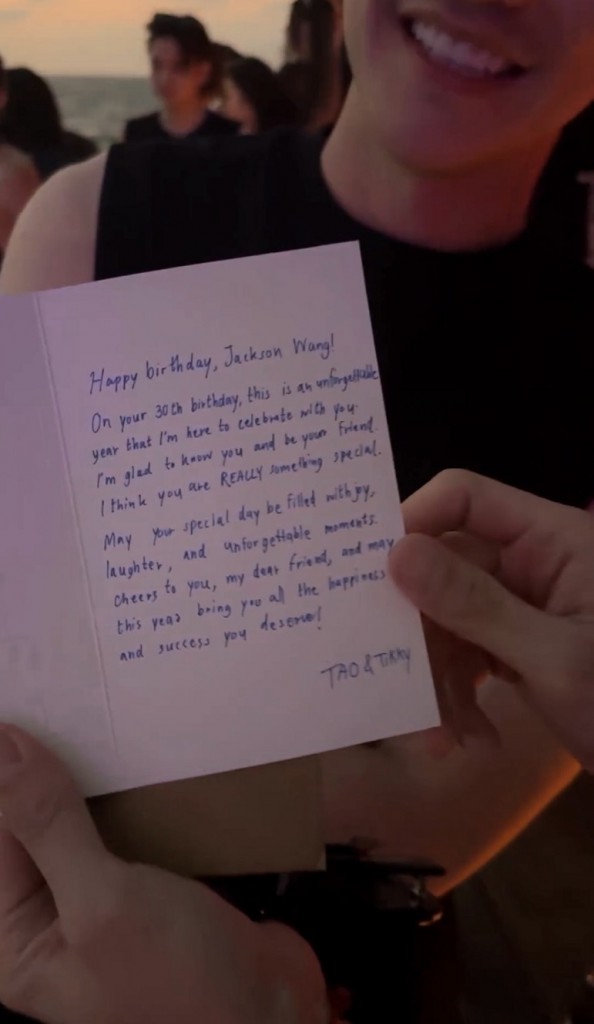 Happy birthday, Jackson Wang!
On your 30th birthday, this is an unforgettable
year that I'm here to celebrate with you.
I'm glad to know you and be your friend.
I think you are REALLY something special.
May your special day be filled with joy,
laughter, and unforgettable moments.
Cheers to you, my dear friend, and may
this year bring you all the happiness
and success you deserve!
TAO & Tikky